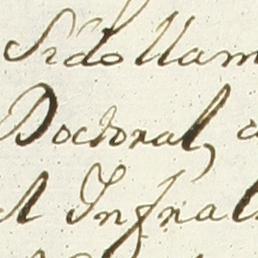 Sido llam
Doctoral, a
el Infras